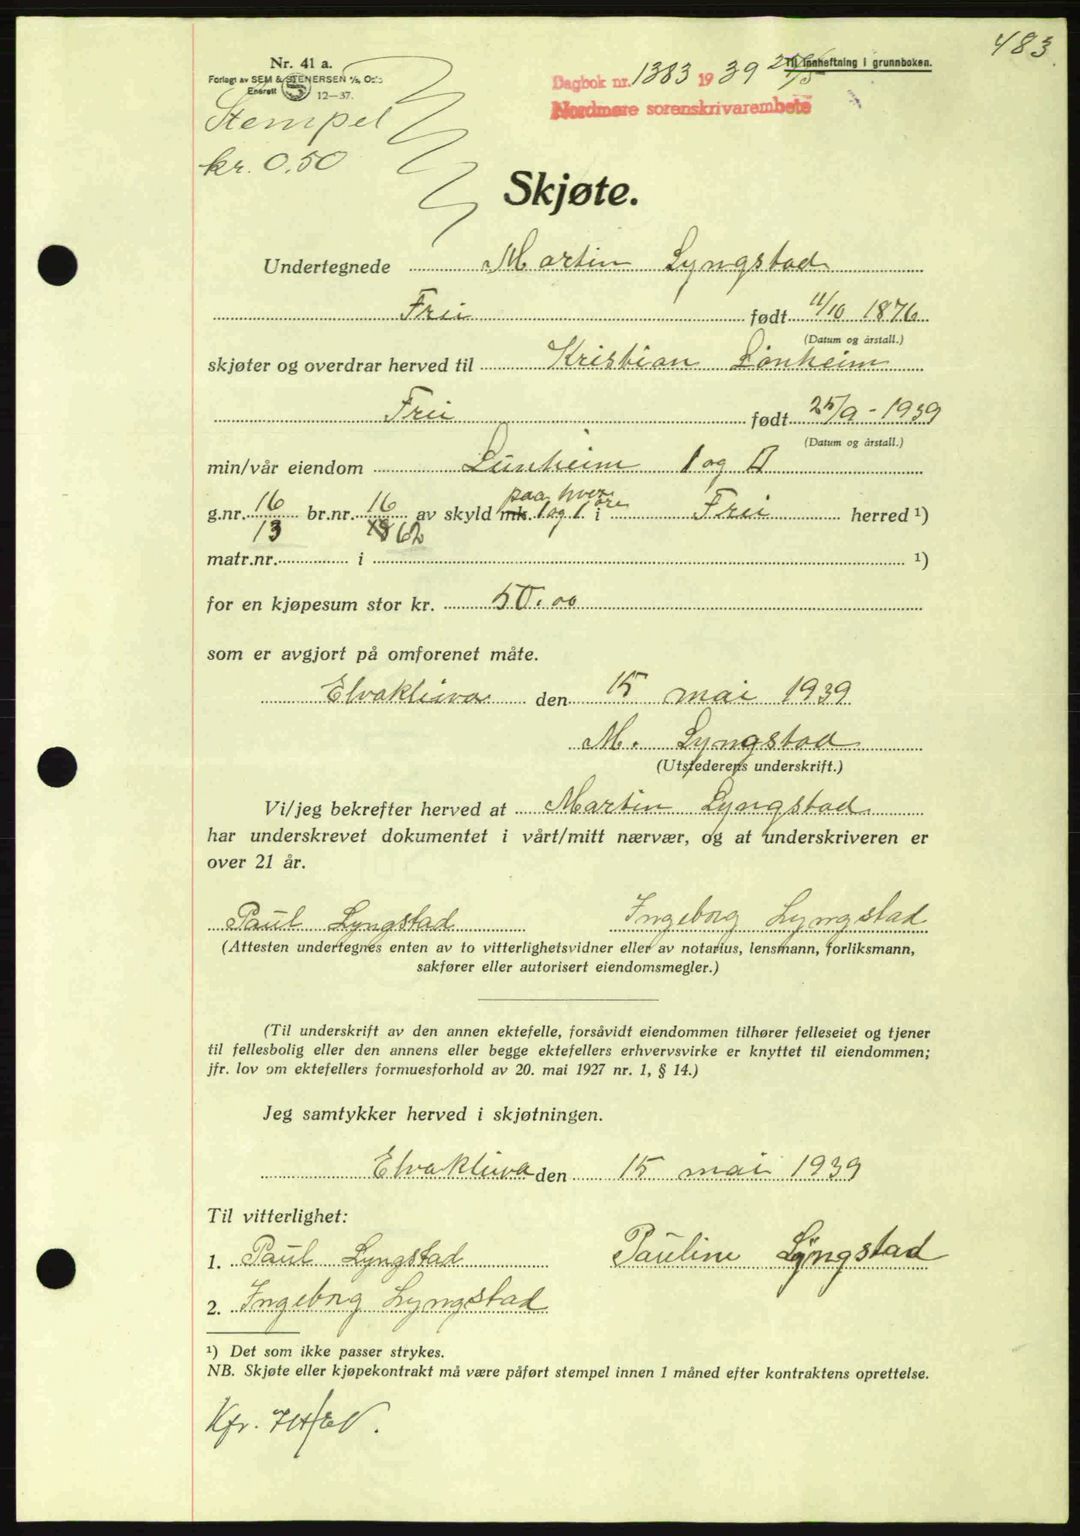 483.
Nr. 41 a.
Forlagt av SEM & STENERSEN A/S, Oslo
Enerett 12—37.
Til innheftning i grunnboken.
Dagbok nr. 1383 1939 25/5
Nordmøre sorenskrivarembete
Stempel
kr. 0.50
Skjøte.
Undertegnede Martin Lyngstad
Frei født 11/10 1876
(Datum og årstall.)
skjøter og overdrar herved til Kristian Lönheim
Frei født 25/9 - 1939
(Datum og årstall.)
min/vår eiendom Lünheim I og II
paa hver
g.nr. 16 br.nr. 16 av skyld mk. 1 og 1 øre i Frei herred ¹)
13 62
matr.nr. i ¹)
for en kjøpesum stor kr. 50.00
som er avgjort på omforenet måte.
Elvakleiva den 15 mai 1939
M. Lyngstad
(Utstederens underskrift.)
Vi/jeg bekrefter herved at Martin Lyngstad
har underskrevet dokumentet i vårt/mitt nærvær, og at underskriveren er
over 21 år.
Paul Lyngstad Ingeborg Lyngstad
(Attesten undertegnes enten av to vitterlighetsvidner eller av notarius, lensmann, forliksmann,
sakfører eller autorisert eiendomsmegler.)
(Til underskrift av den annen ektefelle, forsåvidt eiendommen tilhører felleseiet og tjener
til fellesbolig eller den annens eller begge ektefellers erhvervsvirke er knyttet til eiendommen;
jfr. lov om ektefellers formuesforhold av 20. mai 1927 nr. 1, § 14.)
Jeg samtykker herved i skjøtningen.
Elvakleiva den 15 mai 1939
Til vitterlighet:
1. Paul Lyngstad Pauline Lyngstad
2. Ingeborg Lyngstad
¹) Det som ikke passer strykes.
NB. Skjøte eller kjøpekontrakt må være påført stempel innen 1 måned efter kontraktens oprettelse.
Kfr.